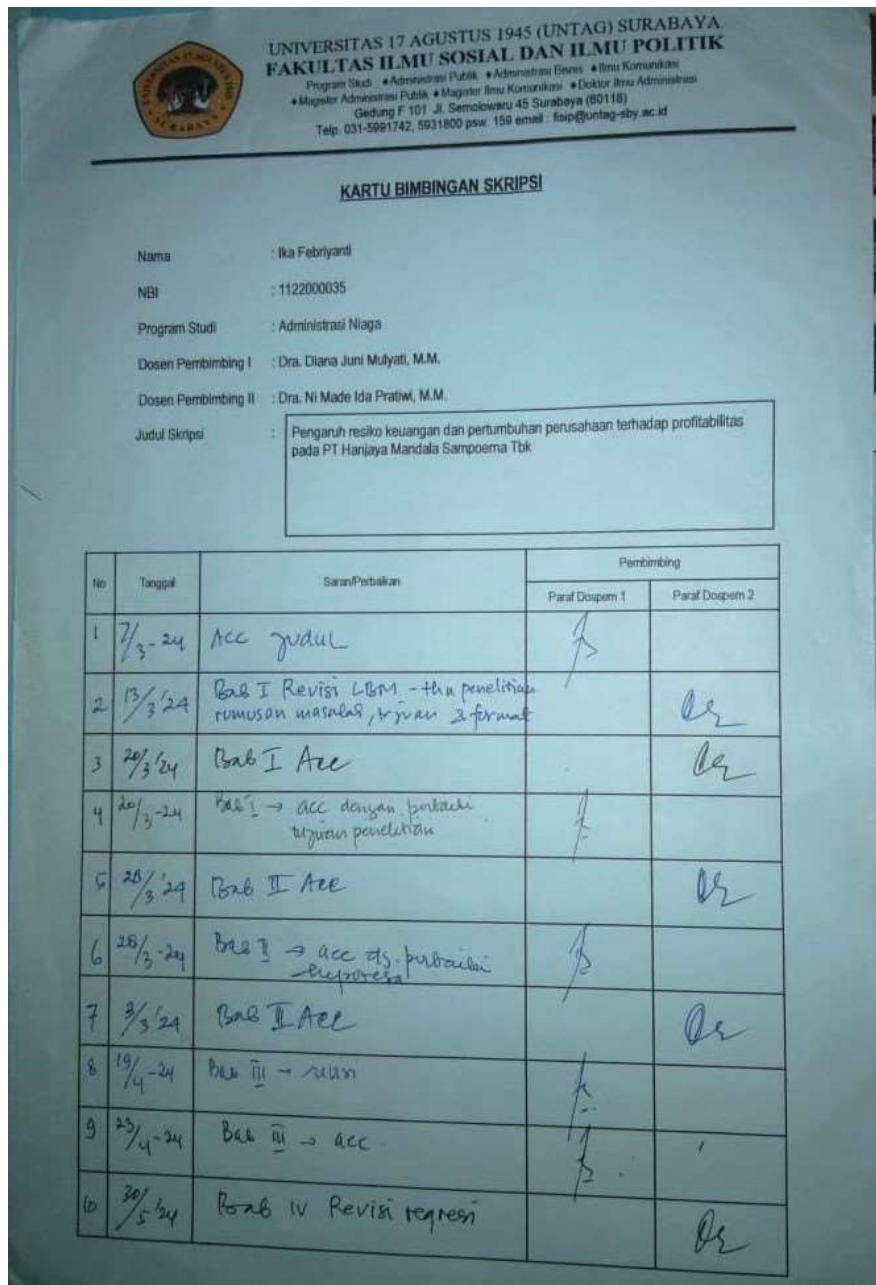 UNIVERSITAS 17 AGUSTUS 1945 (UNTAG) SURABAYA
FAKULTAS ILMU SOSIAL DAN ILMU POLITIK
Program Studi : ♦Administrasi Publik ♦Administrasi Bisnis ♦Ilmu Komunikasi
♦Magister Administrasi Publik ♦Magister Ilmu Komunikasi ♦Doktor Ilmu Administrasi
Gedung F 101 Jl. Semolowaru 45 Surabaya (60118)
Telp. 031-5991742, 5931800 psw. 159 email : fisip@untag-sby.ac.id
SURABAYA
KARTU BIMBINGAN SKRIPSI
Nama : Ika Febriyanti
NBI : 1122000035
Program Studi : Administrasi Niaga
Dosen Pembimbing I : Dra. Diana Juni Mulyati, M.M.
Dosen Pembimbing II : Dra. Ni Made Ida Pratiwi, M.M.
Judul Skripsi : Pengaruh resiko keuangan dan pertumbuhan perusahaan terhadap profitabilitas
pada PT Hanjaya Mandala Sampoerna Tbk
No Tanggal Saran/Perbaikan Pembimbing
Paraf Dospem 1 Paraf Dospem 2
1 7/3-24 Acc Judul
2 13/3'24 Bab I Revisi LBM - thn penelitian
rumusan masalah, tujuan & format
3 20/3'24 Bab I Acc
4 20/3-24 Bab I → acc dengan perbaiki
tujuan penelitian
5 28/3'24 Bab II Acc
6 28/3-24 Bab II → acc dg. perbaiki
hipotesa
7 3/3'24 Bab III Acc
8 19/4-24 Bab III → revisi
9 23/4-24 Bab III → acc
10 30/5'24 Bab IV Revisi regresi